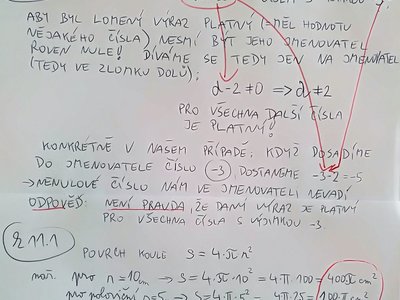 ABY BYL LOMENÝ VÝRAZ PLATNÝ (=MĚL HODNOTU
NĚJAKÉHO ČÍSLA) NESMÍ BÝT JEHO JMENOVATEL
ROVEN NULE! DÍVÁME SE TEDY JEN NA JMENOVATEL
(TEDY VE ZLOMKU DOLŮ):
d-2≠0 => d≠2
PRO VŠECHNA DALŠÍ ČÍSLA
JE PLATNÝ!
KONKRÉTNĚ V NAŠEM PŘÍPADĚ, KDYŽ DOSADÍME
DO JMENOVATELE ČÍSLO (-3), DOSTANEME -3-2=-5
→NENULOVÉ ČÍSLO NÁM VE JMENOVATELI NEVADÍ
ODPOVĚĎ: NENÍ PRAVDA, ŽE DANÝ VÝRAZ JE PLATNÝ
PRO VŠECHNA ČÍSLA S VÝJIMKOU -3
11.1
POVRCH KOULE S=4·π·r²
např. pro r=10cm → S=4·π·10²=4·π·100=400π cm²
pro poloviční r=5 → S=4·π·5²=4π·25=100π cm²